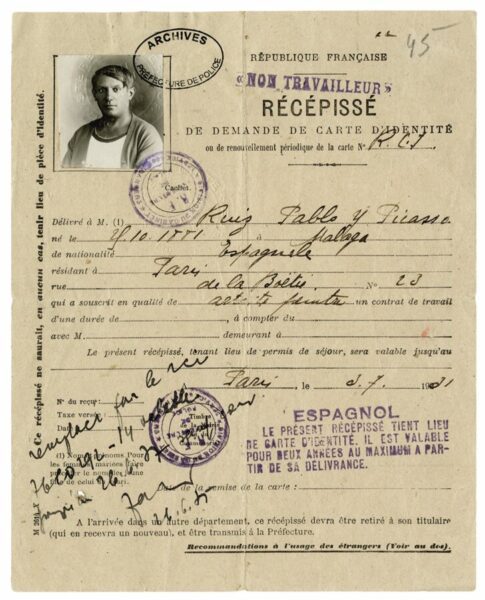 45
ARCHIVES
PRÉFECTURE DE POLICE
RÉPUBLIQUE FRANÇAISE
"NON TRAVAILLEUR"
RÉCÉPISSÉ
DE DEMANDE DE CARTE D'IDENTITÉ
ou de renouvellement périodique de la carte N° R.C.S
Cachet.
Ce récépissé ne saurait, en aucun cas, tenir lieu de pièce d'identité.
Délivré à M. (1) Ruiz Pablo y Picasso
né le 25.10.1881 à Malaga
de nationalité Espagnole
résidant à Paris
rue de la Boëtie N° 23
qui a souscrit en qualité de peintre un contrat de travail
d'une durée de , à compter du
avec M. demeurant à
Le présent récépissé, tenant lieu de permis de séjour, sera valable jusqu'au
Paris, le 3.7.1931
N° du reçu:
Taxe versée:
Timbre
remplacé par le
(1) Nom et Prénoms Pour
les femmes mariées
celui de leur
ESPAGNOL
LE PRÉSENT RÉCÉPISSÉ TIENT LIEU
DE CARTE D'IDENTITÉ. IL EST VALABLE
POUR DEUX ANNÉES AU MAXIMUM A PAR-
TIR DE SA DÉLIVRANCE.
Date de la remise de la carte :
A l'arrivée dans un autre département, ce récépissé devra être retiré à son titulaire
(qui en recevra un nouveau), et être transmis à la Préfecture.
Recommandations à l'usage des étrangers (Voir au dos).